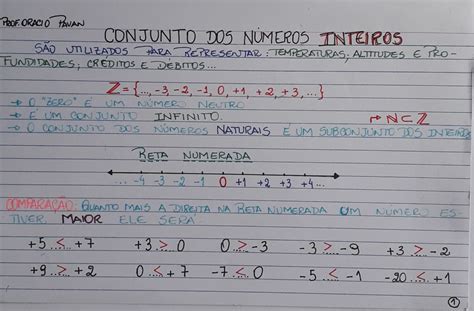 PROF. ORACIO PAVAN
CONJUNTO DOS NÚMEROS INTEIROS
SÃO UTILIZADOS PARA REPRESENTAR: TEMPERATURAS; ALTITUDES E PRO-
FUNDIDADES; CRÉDITOS E DÉBITOS...
Z = {..., -3, -2, -1, 0, +1, +2, +3, ...}
→ O "ZERO" É UM NÚMERO NEUTRO
→ É UM CONJUNTO INFINITO. → N ⊂ Z
→ O CONJUNTO DOS NÚMEROS NATURAIS É UM SUBCONJUNTO DOS INTEIROS
RETA NUMERADA
... -4 -3 -2 -1 0 +1 +2 +3 +4 ...
COMPARAÇÃO: QUANTO MAIS A DIREITA NA RETA NUMERADA UM NÚMERO ES-
TIVER, MAIOR ELE SERÁ
+5 < +7 +3 > 0 0 > -3 -3 > -9 +3 > -2
+9 > +2 0 < +7 -7 < 0 -5 < -1 -20 < +1
1